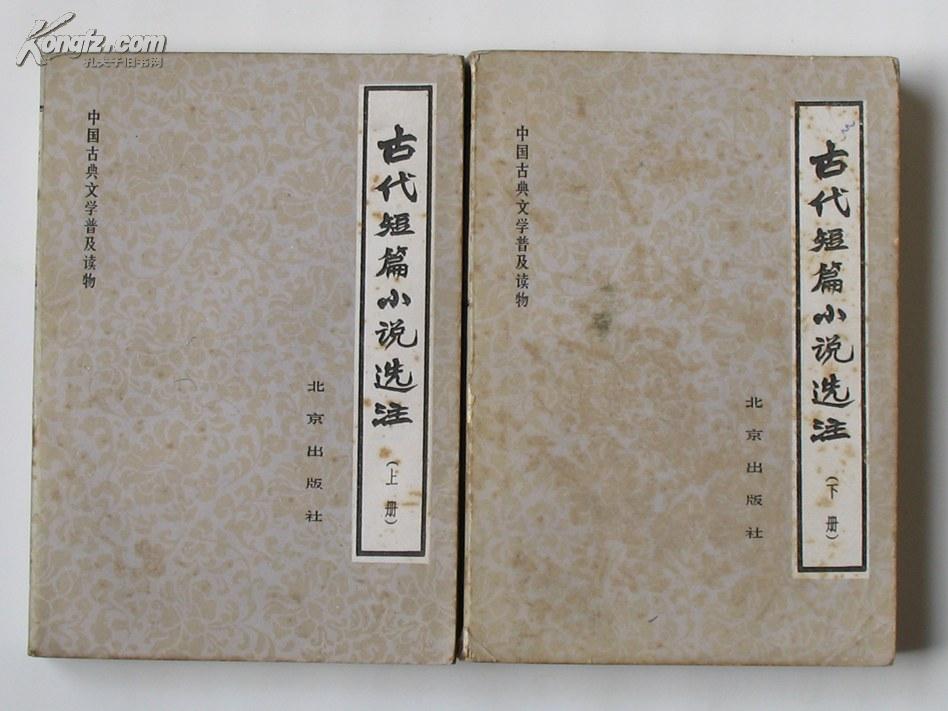 Kongfz.com
孔夫子旧书网
中国古典文学普及读物
古代短篇小说选注
(上册)
北京出版社
中国古典文学普及读物
古代短篇小说选注
(下册)
北京出版社